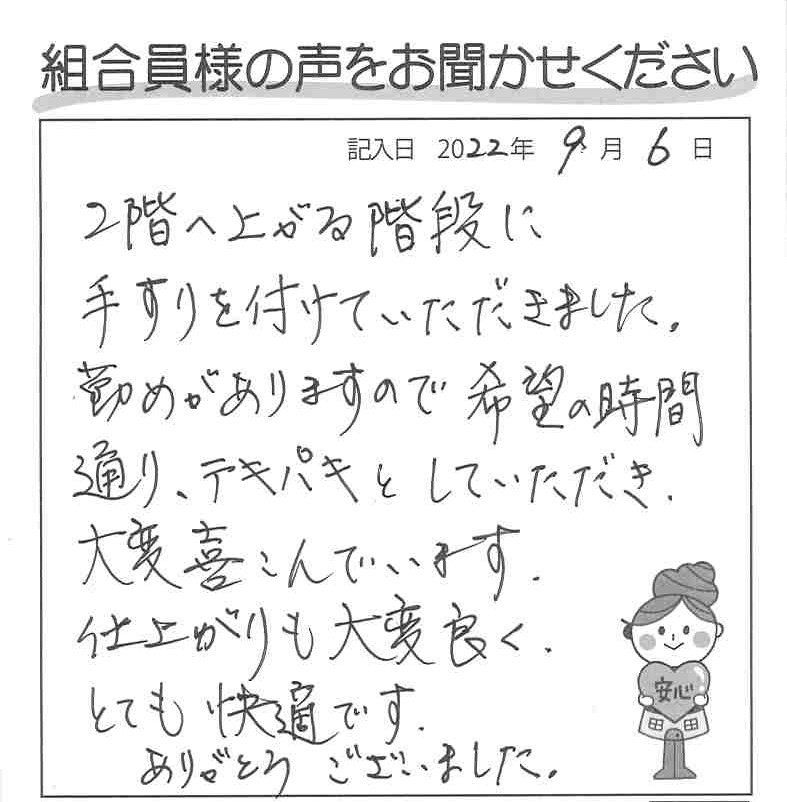 組合員様の声をお聞かせください
記入日 2022年 9月 6日
2階へ上がる階段に
手すりを付けていただきました。
勤めがありますので希望の時間
通り、テキパキとしていただき、
大変喜こんでいます。
仕上がりも大変良く、
とても快適です。
ありがとうございました。
安心